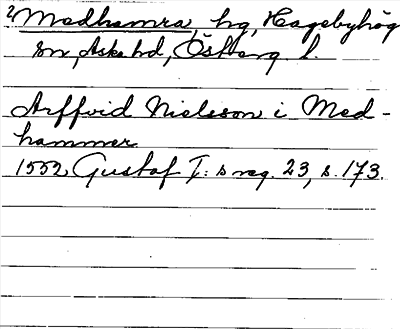 2 Medhamra, hg, Hagebyhög
sn, Aska hd, Östberg l.
Arffvid Nielsson i Med-
hammer
1552 Gustaf I:s reg. 23, s. 173.